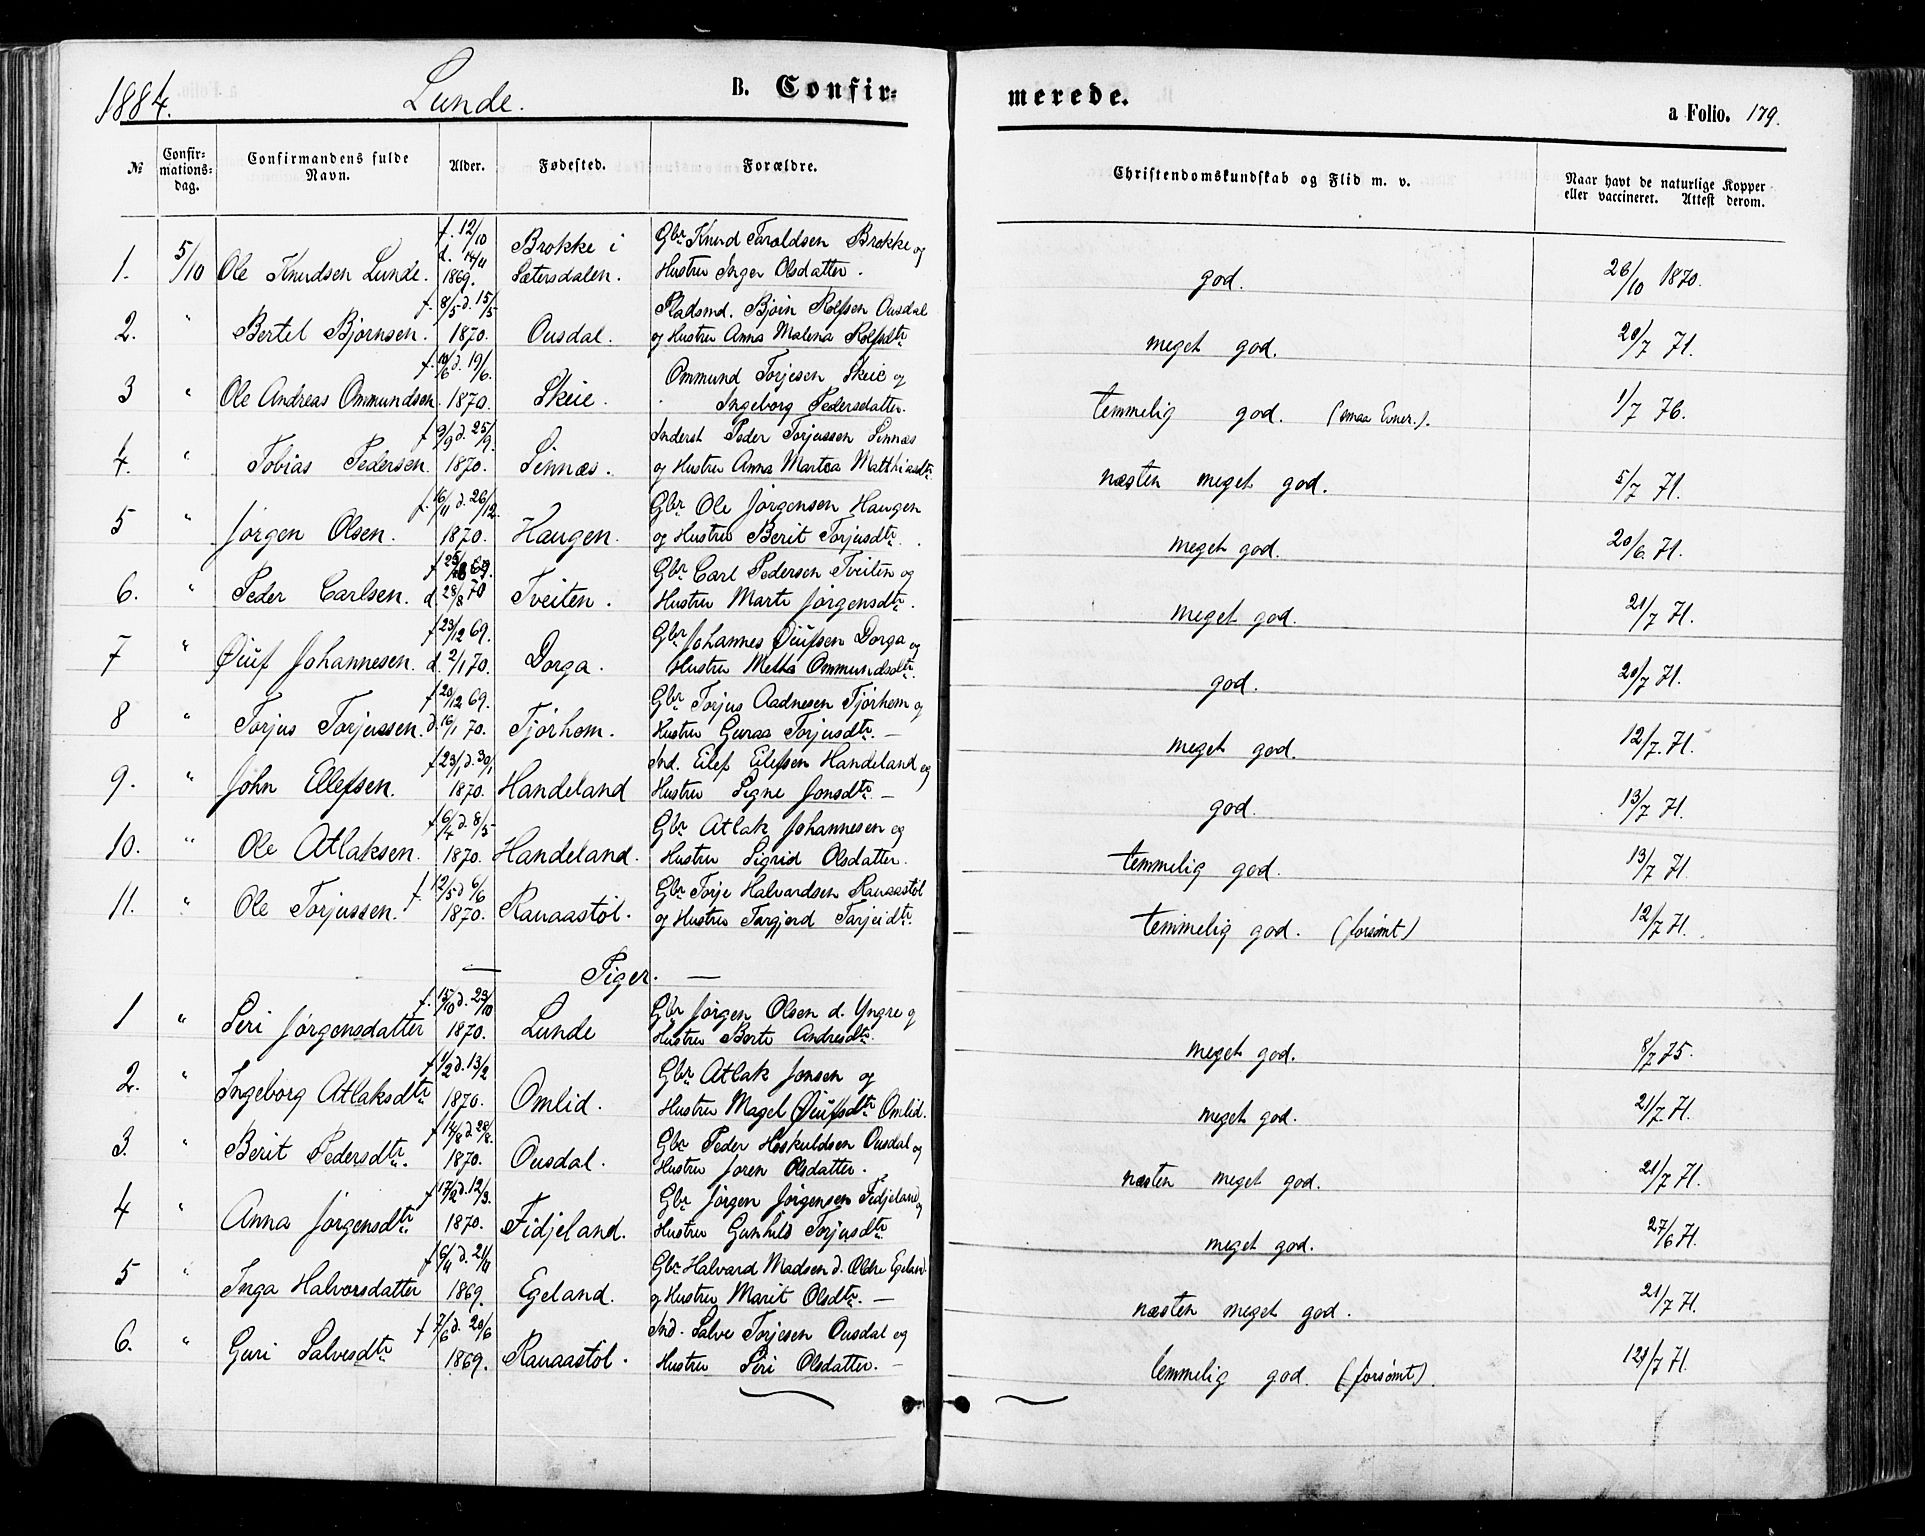 1884. Lunde. B. Confirmerede. a Folio. 179.
№ Confirmationsdag. Confirmandens fulde Navn. Alder. Fødested. Forældre. Christendomskundskab og Flid m. v. Naar havt de naturlige Kopper eller vaccineret. Attest derom.
f. 12/10 Gbr Knud Taraldsen Brokke og
1. 5/10 Ole Knudsen Lunde. d. 14/11 1869. Brokke i Sætersdalen. Hustru Inger Olsdatter. god. 26/10 1870.
f. 8/5 d. 15/5 Pladsmd. Bjørn Rolfsen Ousdal
2. " Bertel Bjørnsen. 1870. Ousdal. og Hustru Anna Malena Rolfsdtr meget god. 20/7 71.
d. 19/6. Ommund Torjesen Skeie og
3 " Ole Andreas Ommundsen. 1870. Skeie. Ingeborg Pedersdatter. temmelig god. (smaa Evner.). 1/7 76.
f 9/9 d. 25/9. Inderst Peder Torjussen Sinnæs
4. " Tobias Pedersen. 1870. Sinnæs. og Hustru Anna Martea Matthiasdtr næsten meget god. 5/7 71.
f. 16/11 d. 26/12. Gbr Ole Jørgensen Haugen
5 " Jørgen Olsen. 1870. Haugen. og Hustru Berit Torjusdtr. meget god. 20/6. 71.
69. Gbr Carl Pedersen Tveiten og
6. " Peder Carlsen. d. 28/8 70 Tveiten. Hustru Marte Jørgensdtr. meget god. 21/7 71.
f 23/12 69. Gbr Johannes Øiufsen Dorga og
7 " Øiuf Johannesen. d. 2/1 70. Dorga. Hustru Metha Ommundsdtr. god. 20/7 71.
f 20/12 69. Gbr Torjus Aadnesen Tjørhom og
8 " Torjus Torjussen. d. 16/1 70. Tjørhom. Hustru Guraa Torjusdtr. — meget god. 12/7. 71.
f 23/1 d. 30/1 Ind. Eilef Eilefsen Handeland og
9. " John Ellefsen. 1870. Handeland Hustru Signe Jonsdtr. — god. 13/7 71.
f 6/4 d. 8/5 Gbr Atlak Johannesen og
10. " Ole Atlaksen. 1870. Handeland. Hustru Sigrid Olsdatter. temmelig god. 13/7 71.
f 12/5 d 6/6 Gbr Torje Halvardsen Rauaastøl
11. " Ole Torjussen. 1870. Rauaastøl. og Hustru Torgjerd Tarjeidtr. temmelig god. (forsømt) 12/7 71.
— Piger. —
f. 15/10 d. 23/10 Gbr Jørgen Olsen d. Yngre og
1 " Siri Jørgensdatter 1870. Lunde Hustru Berte Andresdtr. meget god. 8/7 75.
f 1/2 d. 13/2 Gbr Atlak Jonsen og
2. " Ingeborg Atlaksdtr 1870. Omlid. Hustru Magel Øiufsdtr Omlid. meget god. 21/7. 71.
f 14/8 d. 28/8. Gbr Peder Hoskuldsen Ousdal og
3. " Berit Pedersdtr. 1870. Ousdal. Hustru Joren Olsdatter. næsten meget god. 21/7 71.
f 17/2 d. 12/3. Gbr Jørgen Jørgensen Fidjeland og
4 " Anna Jørgensdtr 1870. Fidjeland. Hustru Gunhild Torjusdtr. meget god. 27/6 71.
f 6/11 d. 21/11 Gbr Halvard Madsen d. Oldre Egeland.
5 " Inga Halvorsdatter 1869. Egeland. og Hustru Marit Olsdtr. — næsten meget god. 21/7 71.
f 7/6 d. 20/6 Ind. Salve Torjesen Ousdal og
6. " Guri Salvesdtr 1869. Rauaastøl. Hustru Siri Olsdatter. — temmelig god. (forsømt). 71.